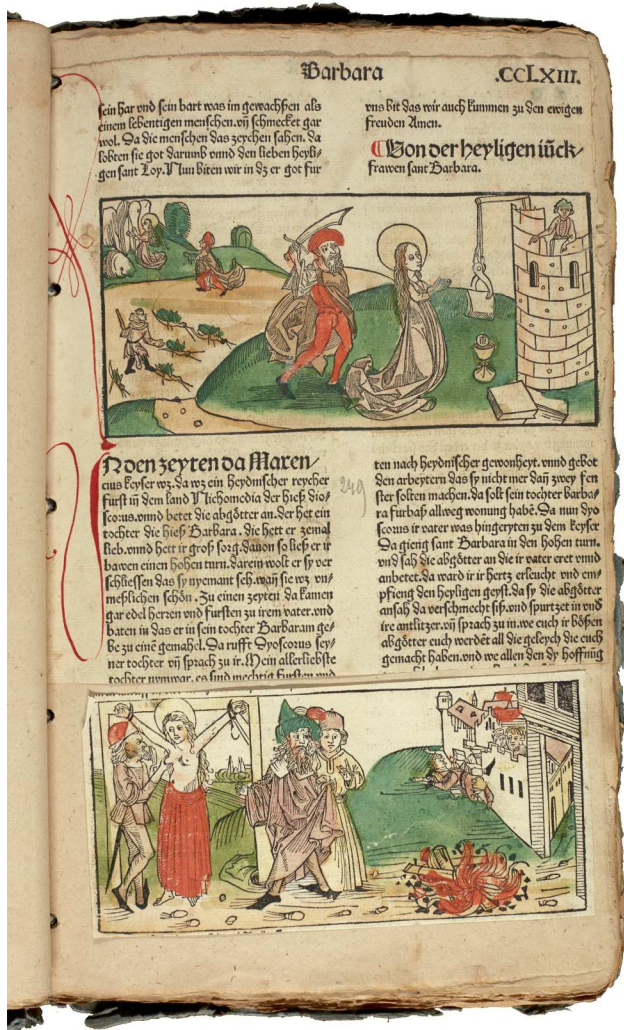 Barbara
.CCLXIII.
sein har vnd sein bart was im gewachßen als
einem lebentigen menschen.vñ schmecket gar
wol. Da die menschen das zeychen sahen. da
lobten sie got darumb vnnd den lieben heyli-
gen sant Loy. Nun biten wir in dz er got für
vns bit das wir auch kummen zu den ewigen
freuden Amen.
Von der heyligen iück-
frawen sant Barbara.
N den zeyten da Maxen/
cius keyser wz.da wz ein heydnischer reycher
furst iñ dem land Nichomedia der hieß dio-
scorus.vnnd betet die abgötter an.der het ein
tochter die hieß Barbara. die hett er zemal
lieb.vnnd hett ir groß sorg.dauon so ließ er ir
bawen einen hohen turn.darein wolt er sy ver
schliessen das sy nyemant sch.wañ sie wz vn-
meßlichen schön. Zu einen zeyten da kamen
gar edel herren vnd fursten zu irem vater.vnd
baten in das er in sein tochter Barbaram ge-
be zu eine gemahel. Da rufft Dyoscorus sey-
ner tochter vñ sprach zu ir. Mein allerliebste
tochter nymwar. es sind mechtig fursten vnd
249
ten nach heydnischer gewonheyt. vnnd gebot
den arbeytern das sy nicht mer dañ zwey fen
ster solten machen.da solt sein tochter barba-
ra furbaß allweg wonung habē. Da nun dyo
scorus ir vater was hingeryten zu dem keyser
Da gieng sant Barbara in den hohen turn.
vnd sah die abgötter an die ir vater eret vnnd
anbetet.da ward ir ir hertz erleucht vnd em-
pfieng den heyligen geyst.da sy die abgötter
ansah da verschmecht siß.vnd spurtzet in vnd
ire antlitzer.vñ sprach zu in.we euch ir bößen
abgötter eüch werdēt all die geleych die euch
gemacht haben.vnd we allen den dy hoffnūg